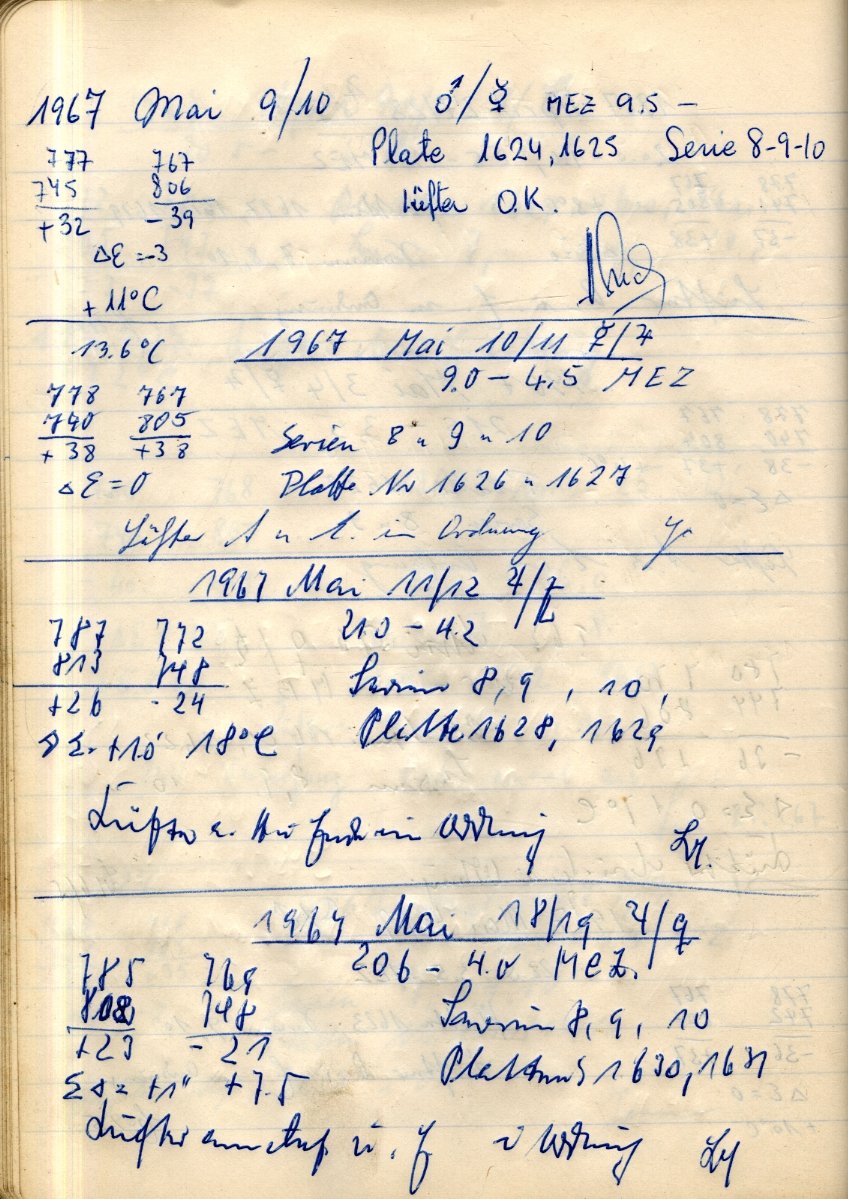 1967 Mai 9/10 ♂/☿ MEZ 9.5 –
777 767 Platte 1624, 1625 Serie 8-9-10
745 806 Lüfter O.K.
+32 - 39
ΔE = -3
+ 11°C
13.6°C 1967 Mai 10/11 ☿/♃
9.0 – 4.5 MEZ
778 767
740 805 Serien 8 u 9 u 10
+ 38 +38
ΔE = 0 Platte Nr 1626 u 1627
Lüfter A u E. in Ordnung
1967 Mai 11/12 ♃/♀
787 772 210 – 4.2
813 748 Serien 8, 9, 10,
+26 - 24
ΔE = +1.0 18°C Platte 1628, 1629
Lüfter in Ordnung Ly.
1967 Mai 18/19 ♃/♀
206 – 4.0 MEZ.
785 769
808 748 Serien 8, 9, 10
+23 - 21
+1" +7.5 Platten 1630, 1631
Lüfter Ordnung Ly